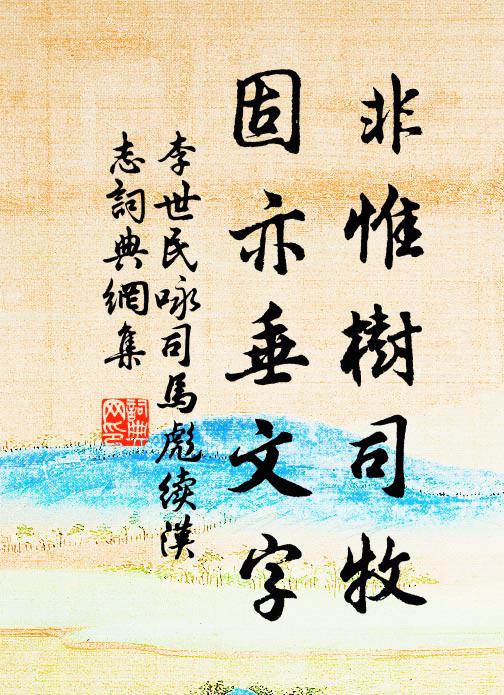 非惟樹司牧
固亦垂文字
李世民咏司馬彪续漢
志詞典網集
詞典
网印